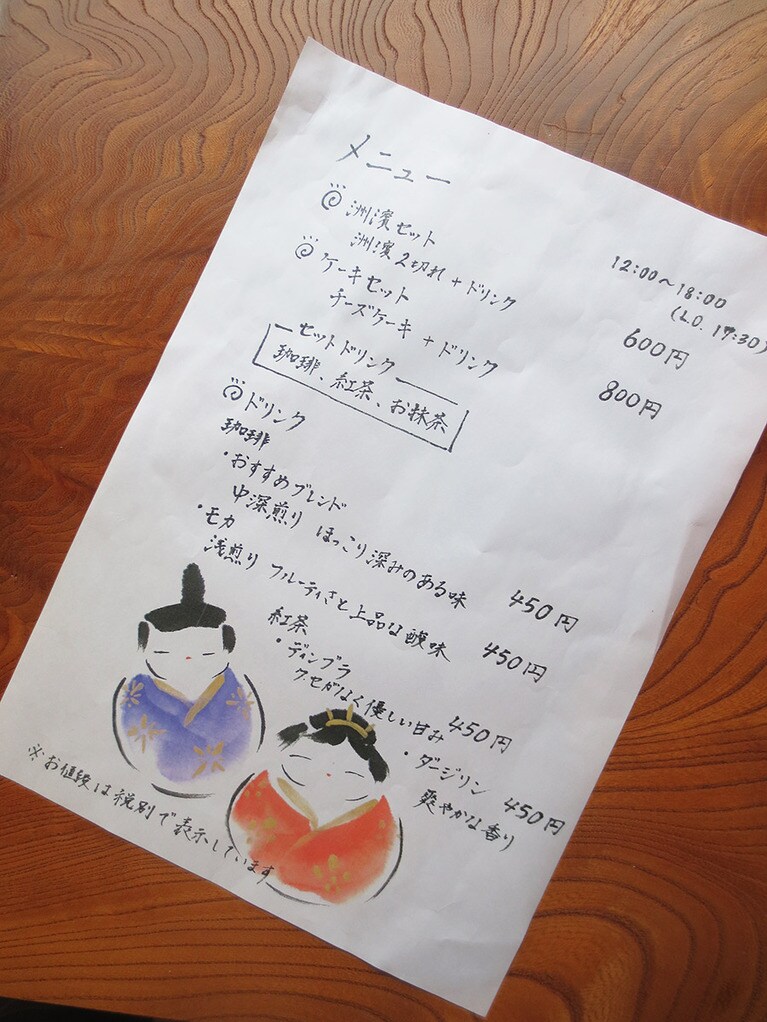 メニュー
12:00～18:00
(L.O. 17:30)
洲濱セット 600円
洲濱2切れ+ドリンク
ケーキセット 800円
チーズケーキ+ドリンク
セットドリンク
珈琲、紅茶、お抹茶
ドリンク
珈琲
・おすすめブレンド 450円
中深煎り ほっこり深みのある味
・モカ 450円
浅煎り フルーティさと上品な酸味
紅茶
・ディンブラ 450円
クセがなく優しい甘み
・ダージリン 450円
爽やかな香り
※お値段は税別で表示しています